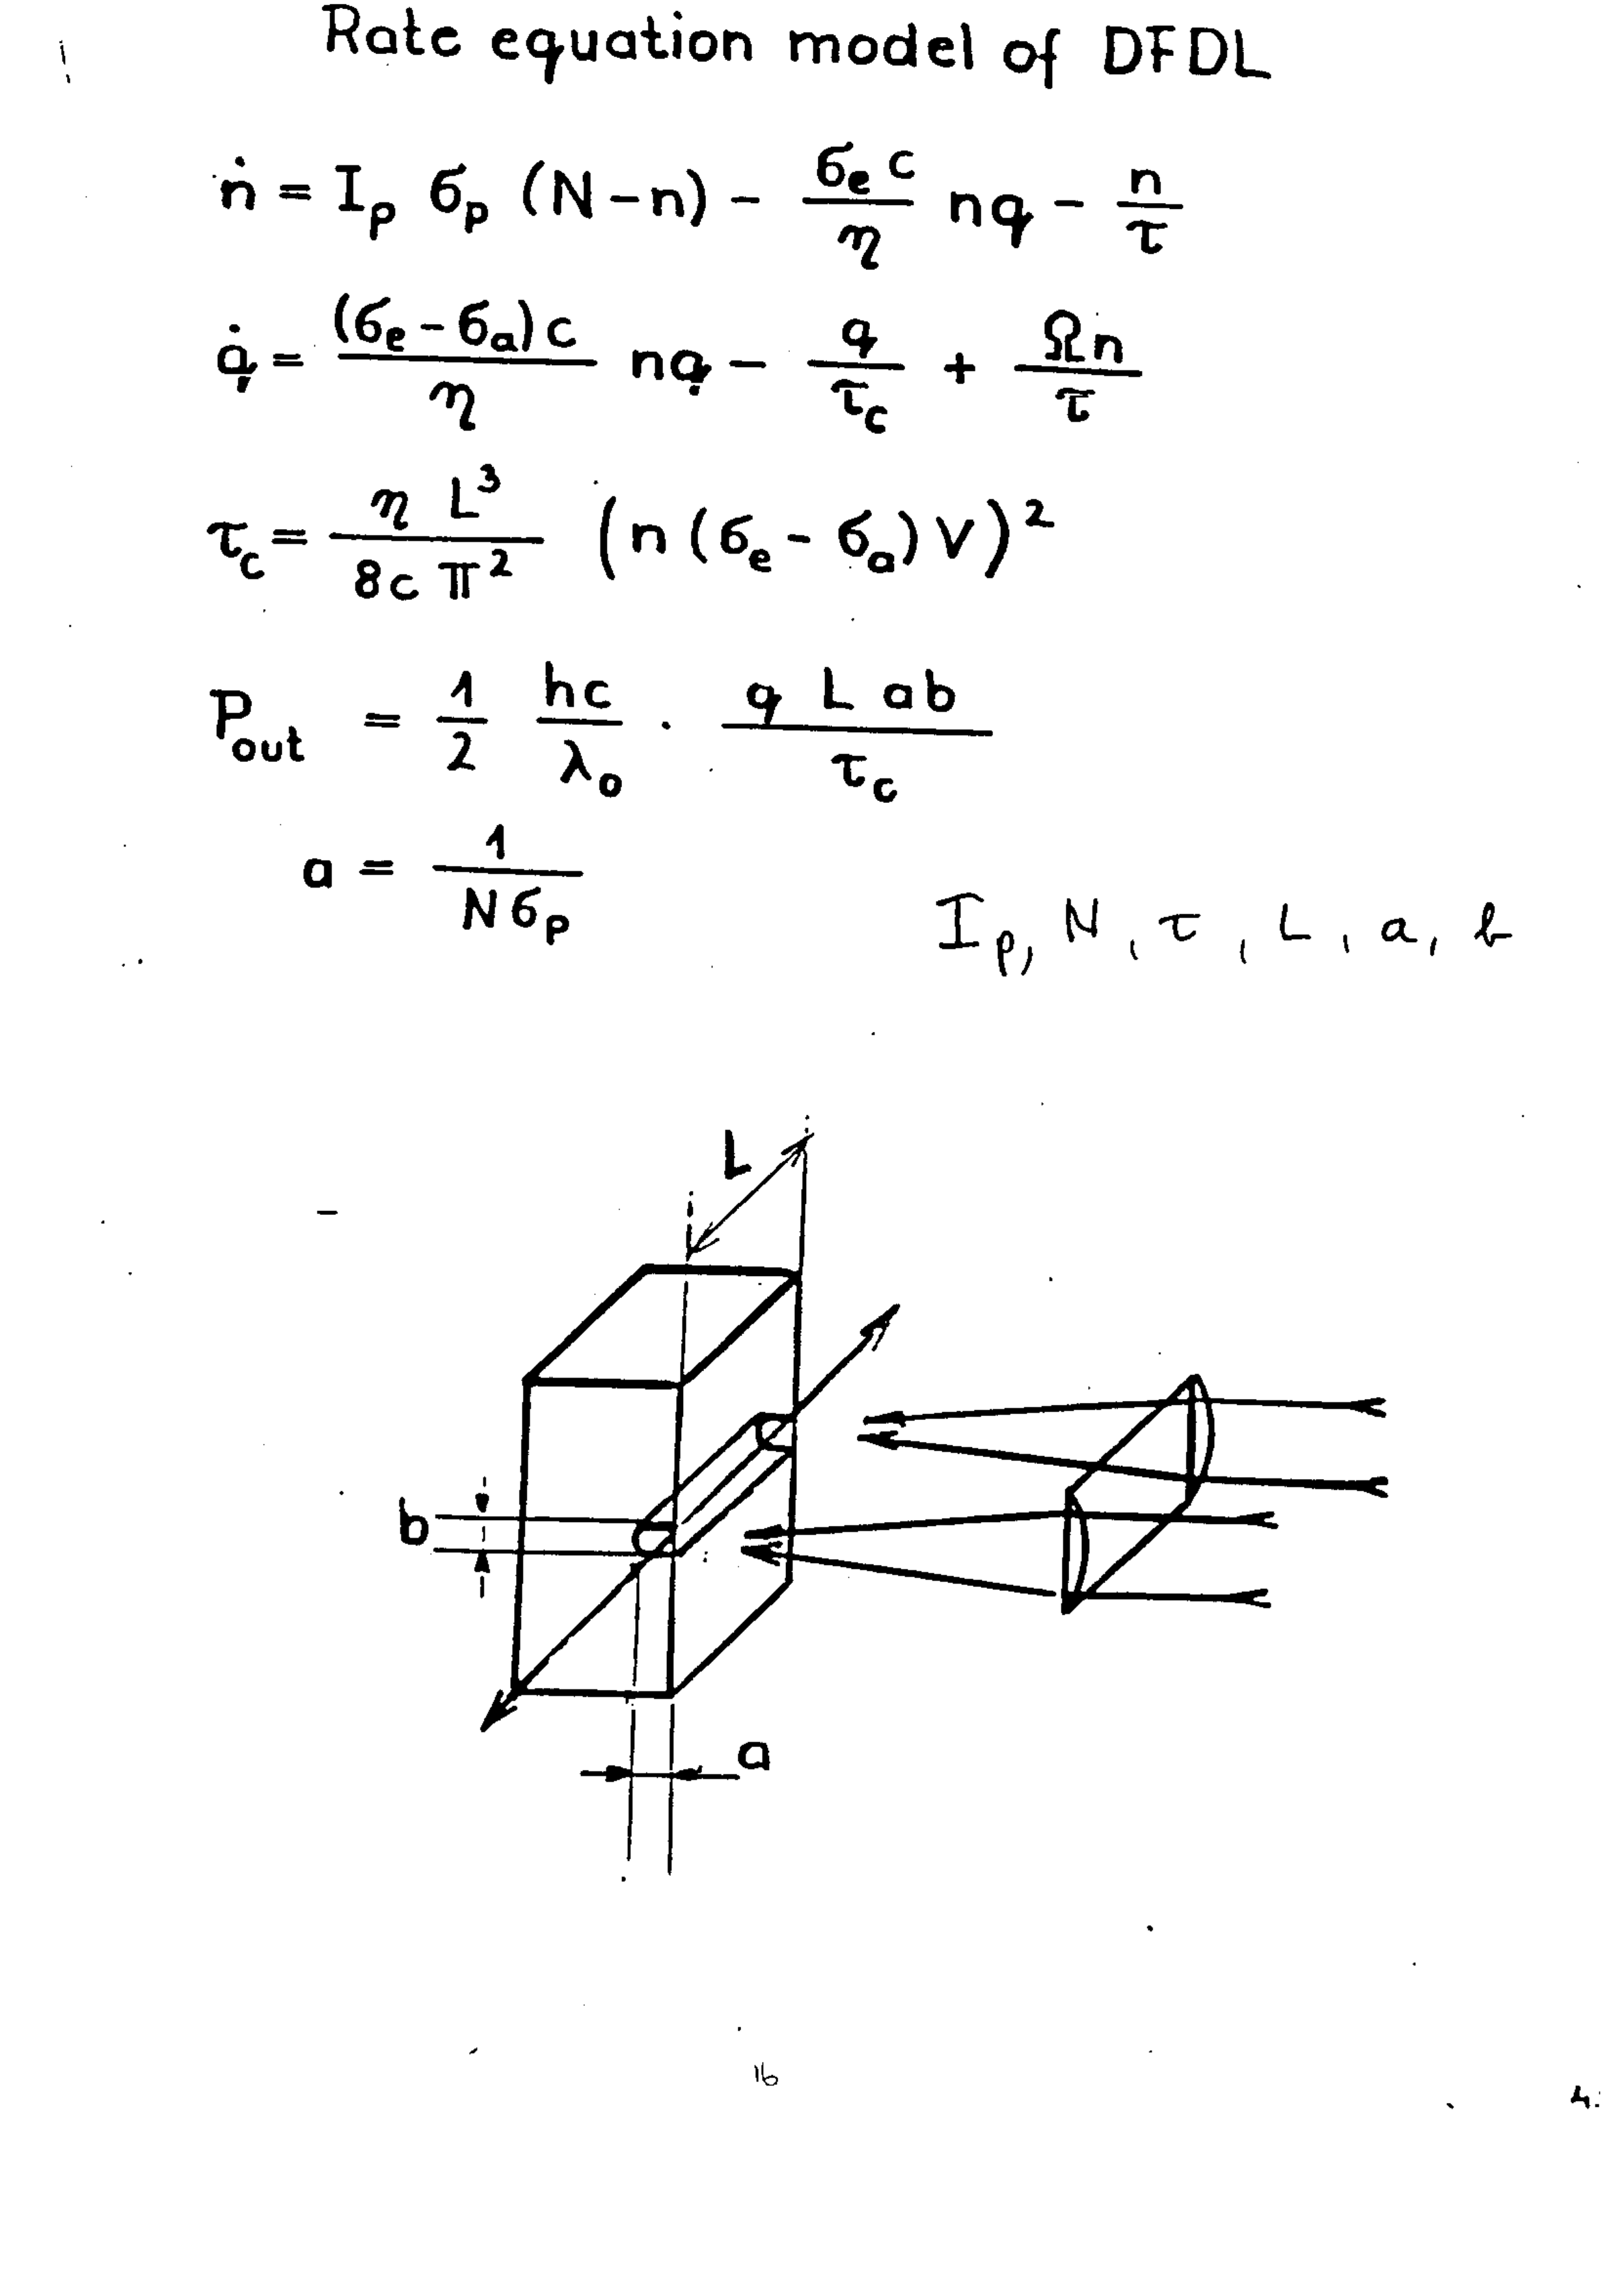 Rate equation model of DFDL
ṅ = I_p σ_p (N-n) - σ_e c / η nq - n / τ
q̇ = (σ_e - σ_a) c / η nq - q / τ_c + Ωn / τ
τ_c = η L³ / 8c π² (n (σ_e - σ_a) V)²
P_out = 1 / 2 hc / λ_0 · q L ab / τ_c
a = 1 / N σ_p
I_p, N, τ, L, a, b
L
b
a
16
4.